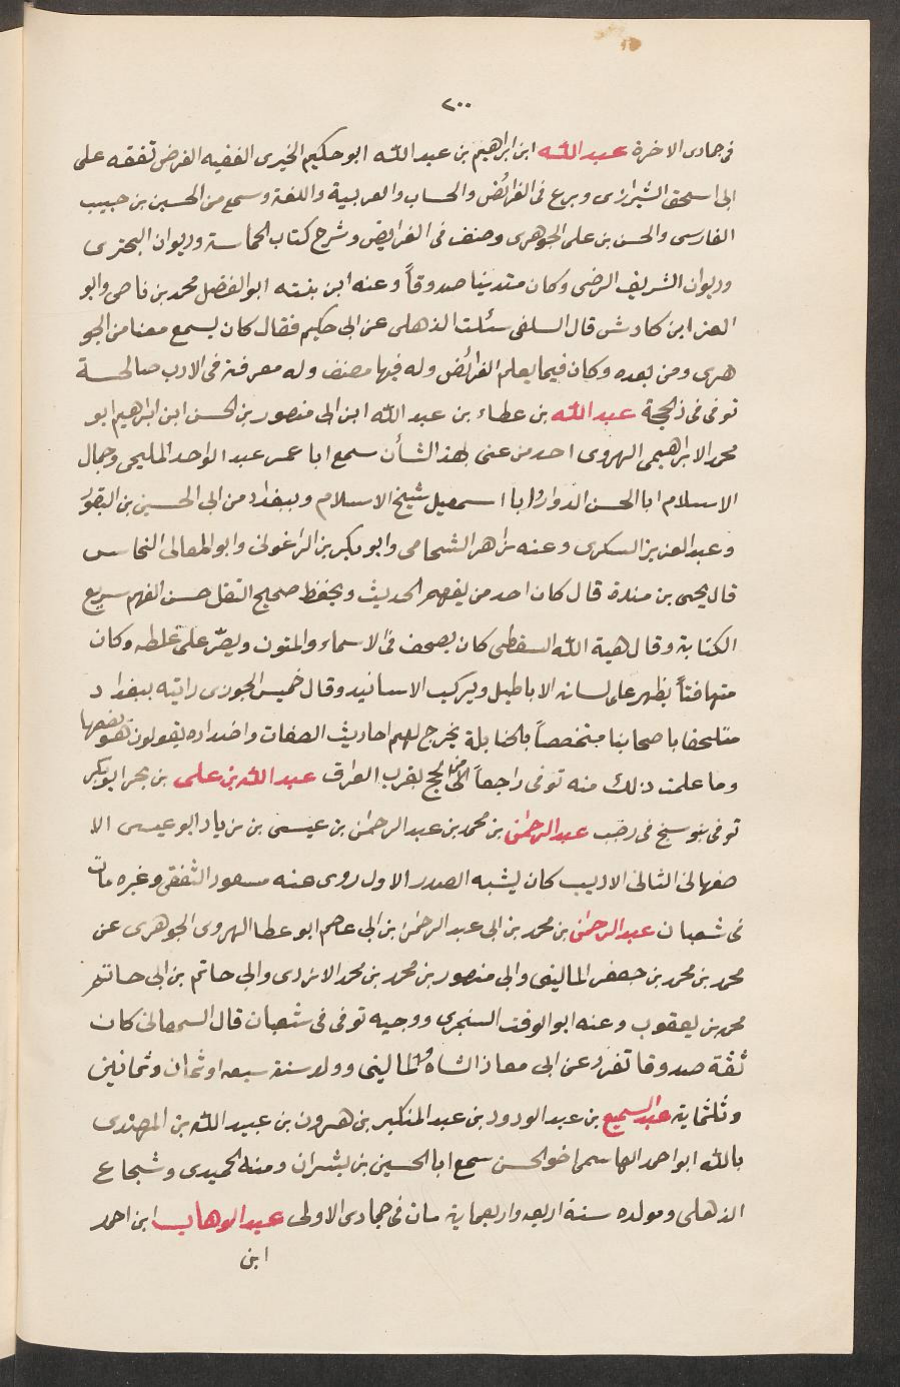 ٢٠٠
فى جمادى الاخرة عبد الله ابن ابراهيم بن عبد الله ابو حكيم الخيرى الفقيه الفرضى تفقه على
ابى اسحق الشيرازى وبرع فى الفرائض والحساب والعربية واللغة وسمع من الحسين بن حبيب
الفارسى والحسن بن على الجوهرى وصنف فى الفرايض وشرح كتاب الحماسة وديوان البحترى
وديوان الشريف الرضى وكان متدينا صدوقاً وعنه ابن بنته ابو الفضل محمد بن ناصر وابو
العز ابن كادش قال السلفى سئلت الذهلى عن ابى حكيم فقال كان يسمع معنا من الجو
هرى ومن بعده وكان فيما يعلم الفرائض وله فيها مصنف وله معرفة فى الادب صالحة
توفى فى ذالحجة عبد الله بن عطاء بن عبد الله ابن ابى منصور بن الحسن ابن ابراهيم ابو
محمد الابراهيمى الهروى احد من عنى بهذ الشأن سمع ابا عمر عبد الواحد المليحى وجمال
الاسلام ابا الحسن الداودى وابا اسمعيل شيخ الاسلام وببغداد من ابى الحسين بن النقور
وعبد العزيز السكرى وعنه زاهر الشحامى وابو بكر بن الزاغونى وابو المعالى النحاس
قال يحيى بن مندة قال كان احد من يفهم الحديث ويحفظ صحيح النقل حسن الفهم سريع
الكتابة وقال هبة الله السقطى كان يصحف فى الاسماء والمتون ويصرّ على غلطه وكان
متهافتاً يظهر على لسانه الاباطيل ويركب الاسانيد وقال خميس الجوزى رايته ببغداد
ملتحفا باصحابنا متخصصاً بالحنابلة يخرج لهم احاديث الصفات واضداده يقولون هو يضعها
وما علمت ذلك منه توفى راجعاً من الحج بقرب العراق عبد الله بن على بن بحر ابو بكر
توفى ببوسنج فى رجب عبد الرحمن بن محمد بن عبد الرحمن بن عيسى بن زياد ابو عيسى الا
صفهانى الثانى الاديب كان يشبه الصدر الاول روى عنه مسعود الثقفى وغيره مات
فى شعبان عبد الرحمن بن محمد بن ابى عبد الرحمن بن ابى عاصم ابو عطا الهروى الجوهرى عن
محمد بن محمد بن جعفر المالينى وابى منصور بن محمد بن محمد الازدى وابى حاتم بن ابى حاتم
محمد بن يعقوب وعنه ابو الوقت السنجرى ووجيه توفى فى شعبان قال السمعانى كان
ثقة صدوقا تفرد عن ابى معاذ الشاه والمالينى وولد سنة سبعه او ثمان وثمانين
وثلثماية عبد السميع بن عبد الودود بن عبد المتكبر بن هرون بن عبيد الله بن المهتدى
بالله ابو احمد الهاشمى اخو الحسن سمع ابا الحسين بن بشران ومنه الحميدى وشجاع
الذهلى ومولده سنة اربعه واربعماية مات فى جمادى الاولى عبد الوهاب ابن احمد
ابن